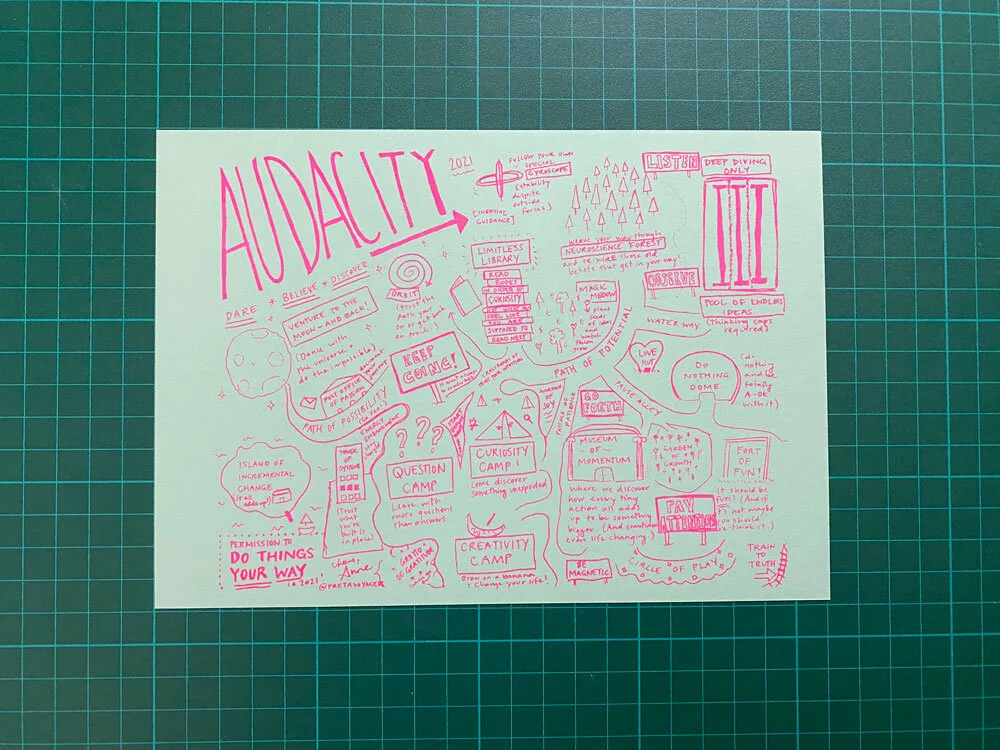 AUDACITY
2021
FOLLOW YOUR OWN
SPECIAL
GYROSCOPE
(stability
despite
outside
forces)
[INERTIAL
GUIDANCE]
LISTEN
DEEP DIVING
ONLY
weave your way through
NEUROSCIENCE FOREST
and re-wire those old
beliefs that get in your way!
OBSERVE
POOL OF ENDLESS
IDEAS
(thinking caps
required)
DARE * BELIEVE + DISCOVER
VENTURE TO THE
MOON—AND BACK!
(Dance with
the universe +
do the impossible)
ORBIT
(trust the
path you're
on or get back
on track!)
LIMITLESS
LIBRARY
READ
BOOKS
IN ORDER OF
CURIOSITY
FEEL LIKE
YOU ARE
SUPPOSED TO
READ NEXT
MAGIC
MEADOW
plant
seeds
of ideas
and
watch them
grow
PATH OF POTENTIAL
WATER WAY
LOVE
HUT
DO
NOTHING
DOME
(do
nothing
and be
totally
A-OK
with it)
KEEP
GOING!
POST OFFICE
OF PASSION
PATH OF POSSIBILITY
(GO FAR!)
ENERGY
EMBANKMENT
PAUSE ALLEY
PALACE OF
PATIENCE
GO
FORTH
? ? ?
QUESTION
CAMP
Leave with
more questions
than answers
CURIOSITY
CAMP!
come discover
something unexpected
MUSEUM
-OF-
MOMENTUM
where we discover
how every tiny
action all adds
up to be something
bigger. (And sometimes
even life changing.)
GARDEN
OF
GROWTH
FORT
OF
FUN!
It should be
fun! (And if
it's not, maybe
you should
re-think it.)
PAY
ATTENTION
ISLAND OF
INCREMENTAL
CHANGE
(it all
adds up!)
TOWER
OF
SYSTEMS
(Trust
what
you've
built is
in place)
CREATIVITY
CAMP
Draw on a banana
+ change your life!
BE
MAGNETIC
CIRCLE OF PLAY
TRAIN
TO
TRUTH
PERMISSION TO
DO THINGS
YOUR WAY
in 2021
Anne
@PRETAVOYAGER
GROTTO
OF GRATITUDE